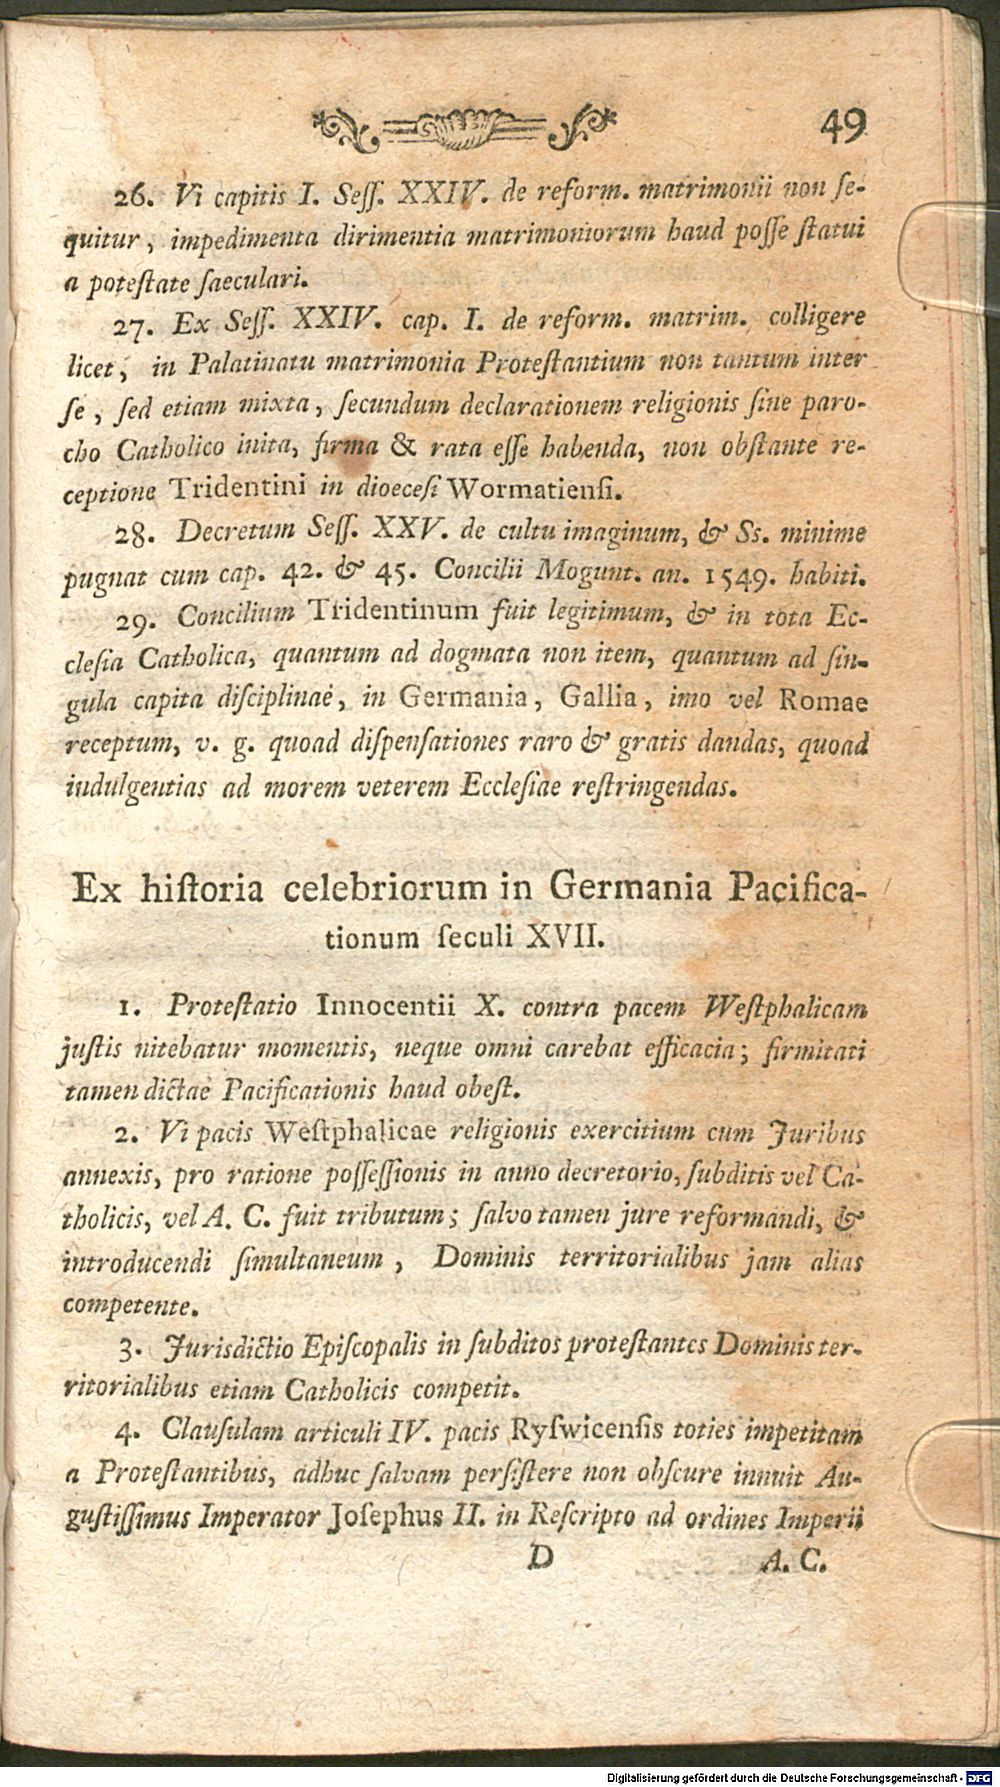 49
26. Vi capitis I. Seſſ. XXIV. de reform. matrimonii non ſe-
quitur, impedimenta dirimentia matrimoniorum haud poſſe ſtatui
a poteſtate ſaeculari.
27. Ex Seſſ. XXIV. cap. I. de reform. matrim. colligere
licet, in Palatinatu matrimonia Proteſtantium non tantum inter
ſe, ſed etiam mixta, ſecundum declarationem religionis ſine paro-
cho Catholico inita, firma & rata eſſe habenda, non obſtante re-
ceptione Tridentini in dioeceſi Wormatienſi.
28. Decretum Seſſ. XXV. de cultu imaginum, & Ss. minime
pugnat cum cap. 42. & 45. Concilii Mogunt. an. 1549. habiti.
29. Concilium Tridentinum fuit legitimum, & in tota Ec-
cleſia Catholica, quantum ad dogmata non item, quantum ad ſin-
gula capita diſciplinae, in Germania, Gallia, imo vel Romae
receptum, v. g. quoad diſpenſationes raro & gratis dandas, quoad
indulgentias ad morem veterem Eccleſiae reſtringendas.
Ex hiſtoria celebriorum in Germania Pacifica-
tionum ſeculi XVII.
1. Proteſtatio Innocentii X. contra pacem Weſtphalicam
juſtis nitebatur momentis, neque omni carebat efficacia; firmitati
tamen dictae Pacificationis haud obeſt.
2. Vi pacis Weſtphalicae religionis exercitium cum Juribus
annexis, pro ratione poſſeſſionis in anno decretorio, ſubditis vel Ca-
tholicis, vel A. C. fuit tributum; ſalvo tamen jure reformandi, &
introducendi ſimultaneum, Dominis territorialibus jam alias
competente.
3. Jurisdictio Epiſcopalis in ſubditos proteſtantes Dominis ter-
ritorialibus etiam Catholicis competit.
4. Clauſulam articuli IV. pacis Ryſwicenſis toties impetitam
a Proteſtantibus, adhuc ſalvam perſiſtere non obſcure innuit Au-
guſtiſſimus Imperator Joſephus II. in Reſcripto ad ordines Imperii
D A. C.
Digitalisierung gefördert durch die Deutsche Forschungsgemeinschaft - DFG